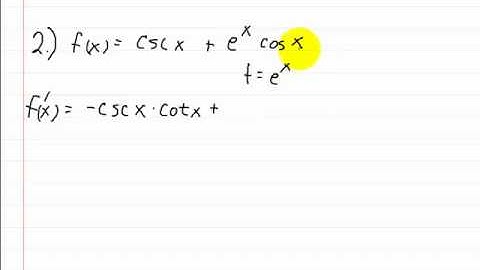 2.) f(x) = csc x + e^x cos x
f = e^x
f'(x) = -csc x · cot x +